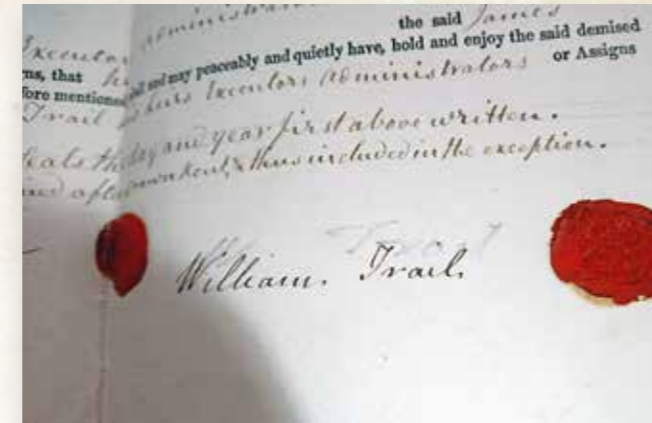 Executor administra
the said James
ns, that he shall and may peaceably and quietly have, hold and enjoy the said demised
fore mentioned heirs Executors administrators or Assigns
Trail
Seals the day and year first above written.
thus included in the exception.
William. Trail.